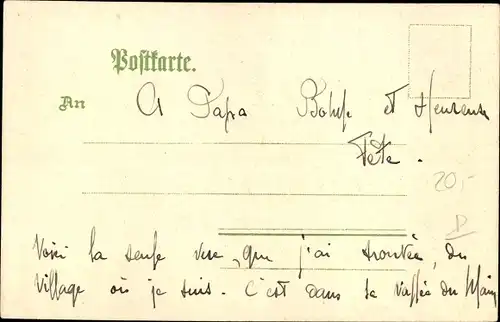 Postkarte.
An
A Papa Bonne et Heureuse
Fête.
20,-
Voici la seule vue, que j'ai trouvée, du
Village où je suis. C'est dans la Vallée du Main